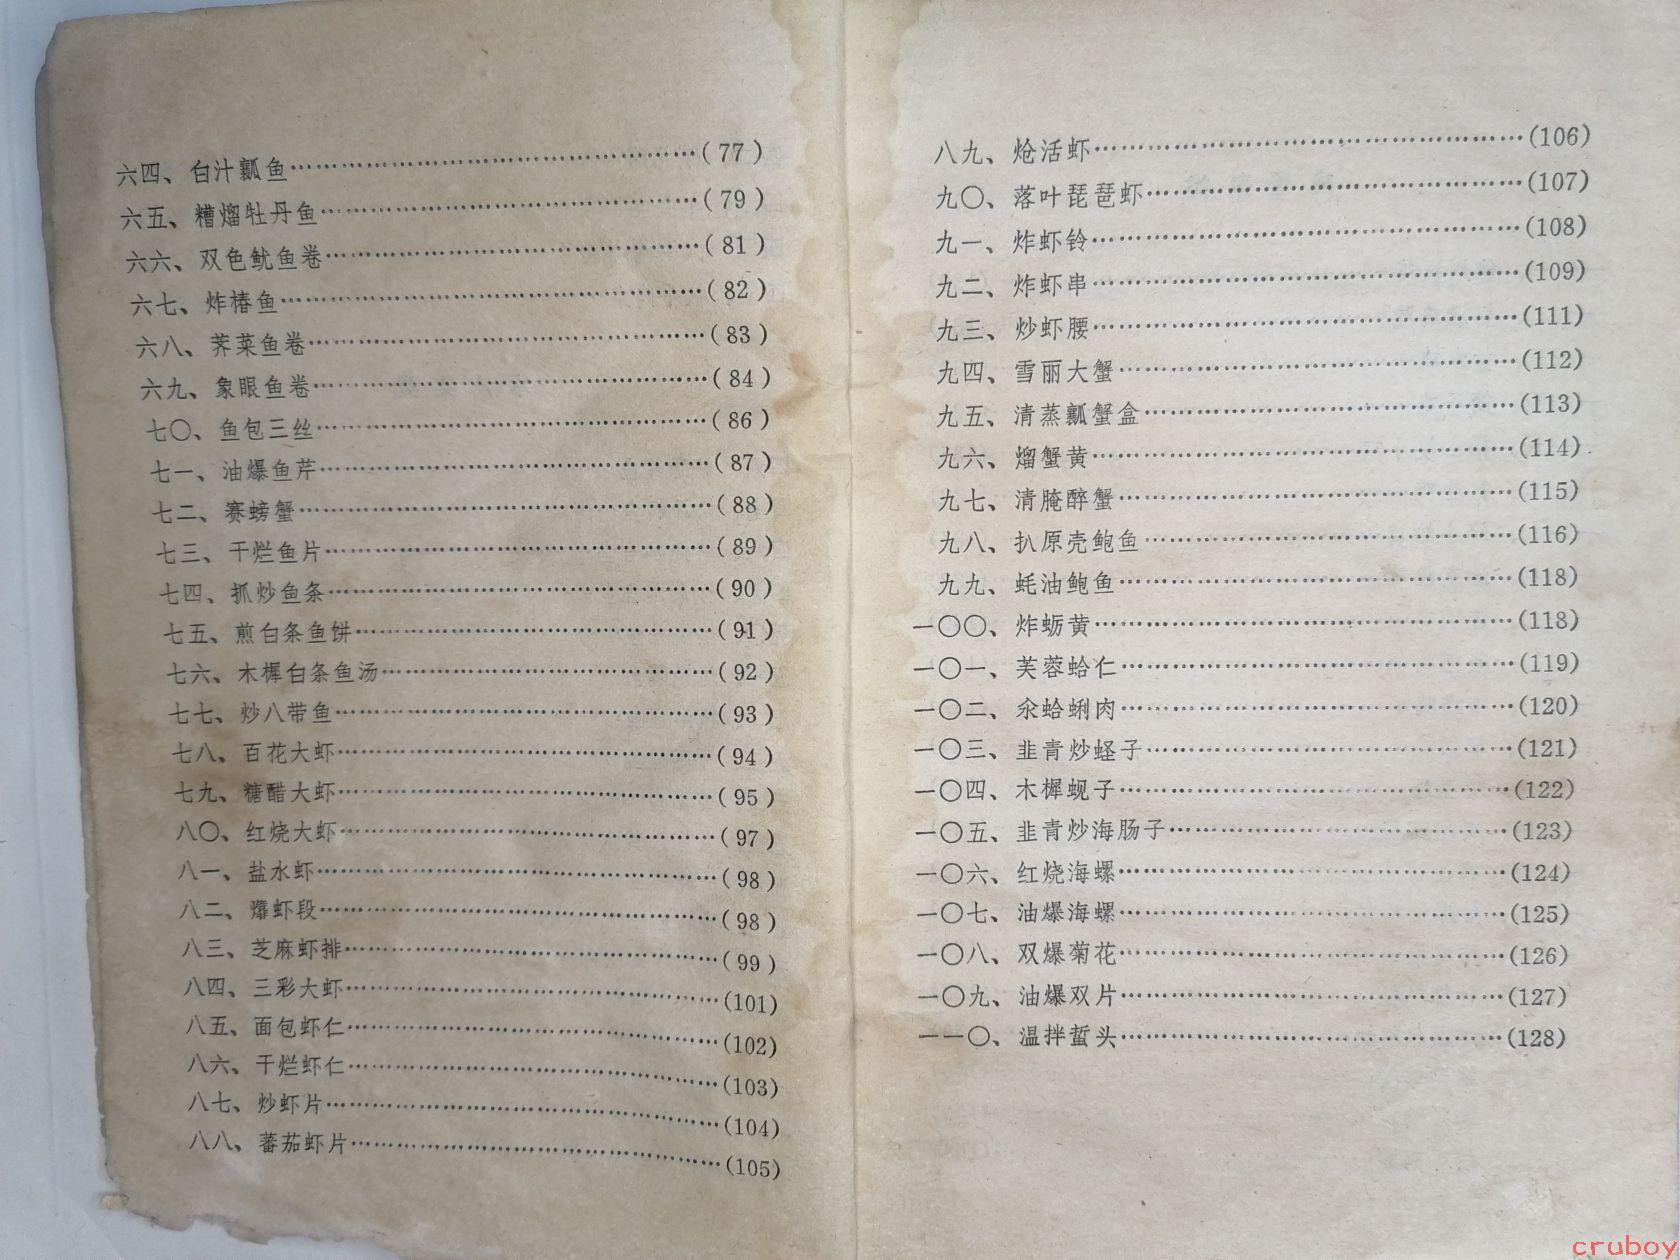 六四、白汁瓤鱼……(77)
六五、糟熘牡丹鱼……(79)
六六、双色鱿鱼卷……(81)
六七、炸椿鱼……(82)
六八、荠菜鱼卷……(83)
六九、象眼鱼卷……(84)
七〇、鱼包三丝……(86)
七一、油爆鱼芹……(87)
七二、赛螃蟹……(88)
七三、干烂鱼片……(89)
七四、抓炒鱼条……(90)
七五、煎白条鱼饼……(91)
七六、木樨白条鱼汤……(92)
七七、炒八带鱼……(93)
七八、百花大虾……(94)
七九、糖醋大虾……(95)
八〇、红烧大虾……(97)
八一、盐水虾……(98)
八二、㸆虾段……(98)
八三、芝麻虾排……(99)
八四、三彩大虾……(101)
八五、面包虾仁……(102)
八六、干烂虾仁……(103)
八七、炒虾片……(104)
八八、蕃茄虾片……(105)
八九、炝活虾……(106)
九〇、落叶琵琶虾……(107)
九一、炸虾铃……(108)
九二、炸虾串……(109)
九三、炒虾腰……(111)
九四、雪丽大蟹……(112)
九五、清蒸瓤蟹盒……(113)
九六、熘蟹黄……(114)
九七、清腌醉蟹……(115)
九八、扒原壳鲍鱼……(116)
九九、蚝油鲍鱼……(118)
一〇〇、炸蛎黄……(118)
一〇一、芙蓉蛤仁……(119)
一〇二、汆蛤蜊肉……(120)
一〇三、韭青炒蛏子……(121)
一〇四、木樨蚬子……(122)
一〇五、韭青炒海肠子……(123)
一〇六、红烧海螺……(124)
一〇七、油爆海螺……(125)
一〇八、双爆菊花……(126)
一〇九、油爆双片……(127)
一一〇、温拌蜇头……(128)
cruboy